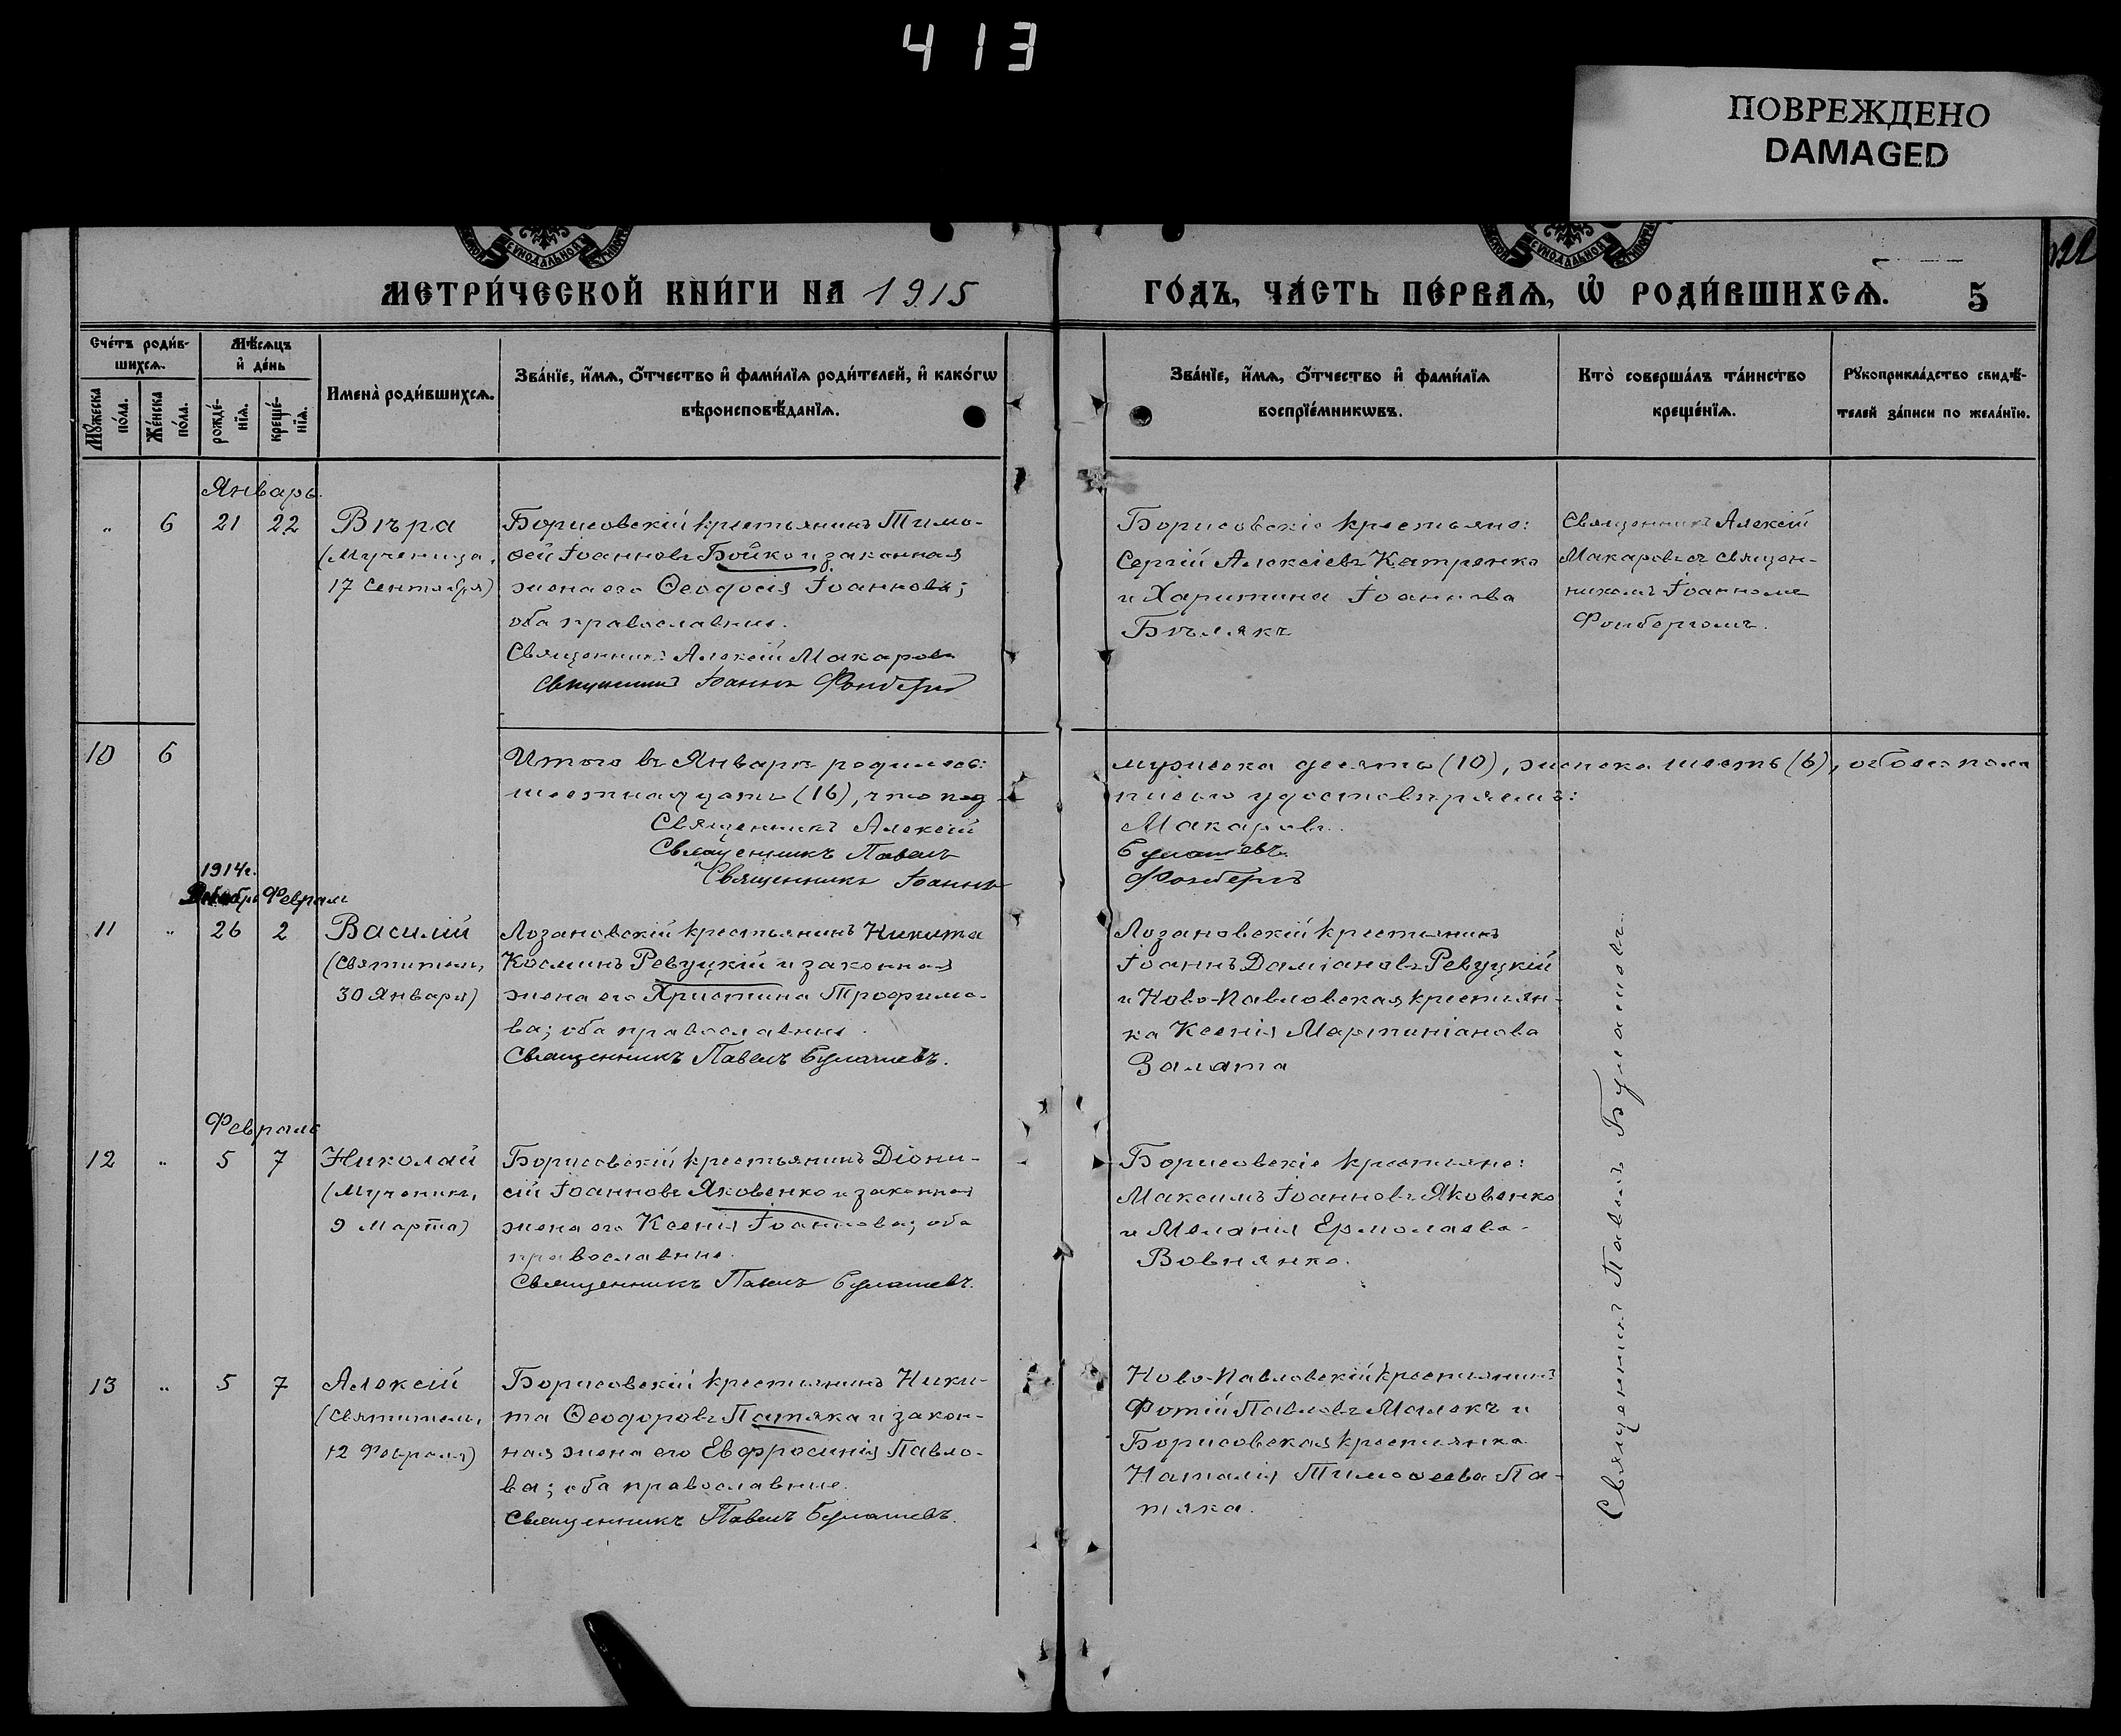 413
ПОВРЕЖДЕНО
DAMAGED
СУНОДАЛЬНОЙ
СУНОДАЛЬНОЙ
МЕТРИ́ЧЕСКОЙ КНИ́ГИ НА 1915
ГО́ДЪ, ЧА́СТЬ ПЕ́РВАѦ, Ѡ РОДИ́ВШИХСѦ. 5
Сче́тъ роди́в-
шихсѧ.
Мꙋ́жеска по́ла.
Же́нска по́ла.
Мѣ́сѧцъ
и҆ де́нь
рожде́-нїѧ.
креще́-нїѧ.
Имена̀ роди́вшихсѧ.
Зва́нїе, и҆́мѧ, ѻ҆́тчество и҆ фами́лїѧ роди́телей, и҆ како́гѡ
вѣроисповѣ́данїѧ.
Зва́нїе, и҆́мѧ, ѻ҆́тчество и҆ фами́лїѧ
воспрїе́мникѡвъ.
Кто̀ соверша́лъ та́инство
креще́нїѧ.
Рꙋкоприкла́дство свидѣ́-
телей за́писи по жела́нїю.
Январь.
" 6 21 22 Вѣра
(Мученица,
17 Сентября)
Борисовскій крестьянинъ Тимо-
ѳей Іоанновъ Бойко и законная
жена его Ѳеодосія Іоаннова;
оба православные.
Священникъ Алексій Макаровъ
Священникъ Іоаннъ Фонбергъ
Борисовскіе крестьяне:
Сергій Алексіевъ Катренко
и Харитина Іоаннова
Бѣлякъ
Священникъ Алексій
Макаровъ съ священ-
никомъ Іоанномъ
Фонбергомъ.
10 6
Итого въ Январѣ родилось: мужеска десять (10), женска шесть (6), обоего пола
шестнадцать (16), что подписью удостовѣряемъ:
Священникъ Алексій Макаровъ.
Священникъ Павелъ Булашевъ.
Священникъ Іоаннъ Фонбергъ
1914г.
Декабрь Февраль
11 " 26 2 Василій
(Святитель,
30 Января)
Лозановскій крестьянинъ Никита
Косминъ Ревуцкій и законная
жена его Христина Трофимо-
ва; оба православные.
Священникъ Павелъ Булашевъ.
Лозановскій крестьянинъ
Іоаннъ Даміановъ Ревуцкій
и Ново-Павловская крестьян-
ка Ксенія Мартиніанова
Залата
Февраль
12 " 5 7 Николай
(Мученикъ,
9 Марта)
Борисовскій крестьянинъ Діони-
сій Іоанновъ Яковенко и законная
жена его Ксенія Іоаннова; оба
православные.
Священникъ Павелъ Булашевъ.
Борисовскіе крестьяне:
Максимъ Іоанновъ Яковенко
и Меланія Ермолаева
Вовнянко.
13 " 5 7 Алексій
(Святитель,
12 Февраля)
Борисовскій крестьянинъ Ники-
та Ѳеодоровъ Патяка и закон-
ная жена его Евфросинія Павло-
ва; оба православные.
Священникъ Павелъ Булашевъ.
Ново-Павловскій крестьянинъ
Фотій Павловъ Малекъ и
Борисовская крестьянка
Наталія Тимоѳеева Па-
тяка.
Священникъ Павелъ Булашовъ.